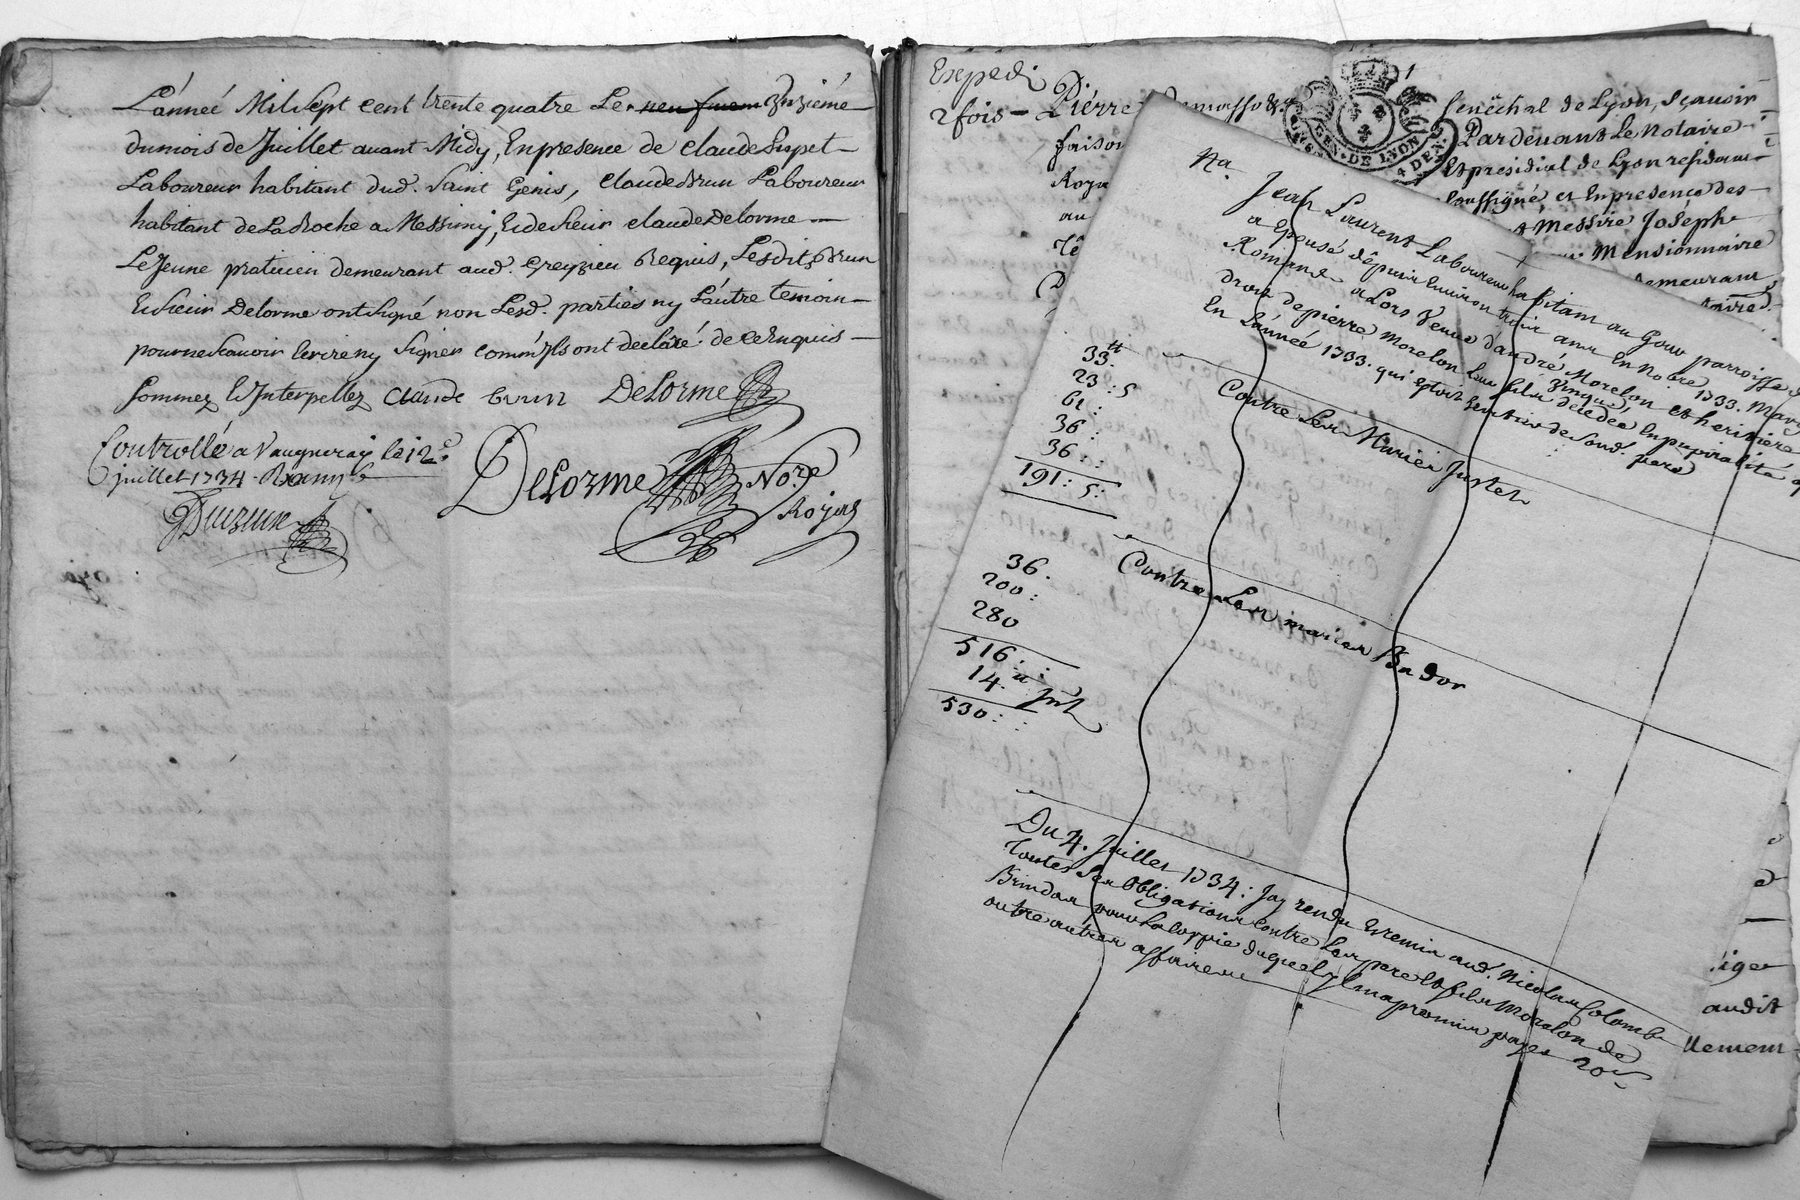 L'année Mil Sept cent trente quatre Le onzième
du mois de Juillet avant Midy, En presence de Claude
Laboureur habitant dud. Saint Genis, Claude Brun Laboureur
habitant de La Roche a Messimy, Et de Sieur Claude Delorme
Le Jeune praticien demeurant aud. Creyzieu Requis, Lesdits Brun
Et Sieur Delorme ont Signé non Lesd. parties ny L'autre temoin
pour ne Scavoir Ecrire ny Signer comm'Ils ont declaré de ce Enquis
Sommez Et Interpellez Claude brun Delorme
Controllé a Vaugneray le 12e
juillet 1734.
Delorme No.re
Royal
Expedié
2 fois - Pierre
Senéchal de Lyon, Sçavoir
Pardevant Le Notaire
Et presidial de Lyon residant
soussigné et En presence des
Messire Joseph
Mansionnaire
demeurant
GEN. DE LYON
4 DEN
Na.
Jean Laurent Laboureur habitant au Gouv parroisse
a Epousé depuis Environ trois ans En Nobre 1733. Marie
Romand alors Veuve d'andré Morelon et heritiere
droit de pierre Morelon Leur fils decedé En pupilarité
En L'année 1733. qui Estoit heritier de Sond. pere
33tt
23 : 5
61 :
36 :
36 : :
191 : 5 :
Contre Les Murier Justet
36.
200 :
280
516 : :
14.
530 : :
Contre Les mariez
Du 4. Juillet 1734 : Jay rendu Et remis aud. Nicolas Colomb
toutes Ses obligations contre Les pere Et fils Morelon de
Brindas pour La coppie duquel Il m'a promis payer 20s
outre autres affaires
iger
audit
llement